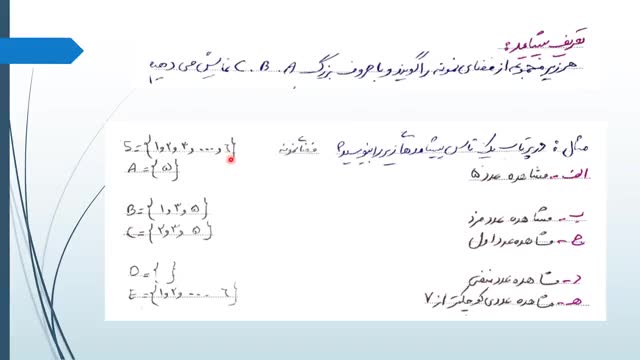 تعریف پیشامد:
هر زیر مجموعه از فضای نمونه را گویند و با حروف بزرگ A . B . C نمایش می دهیم
مثال : در پرتاب یک تاس پیشامدهای زیر را بنویسید؟ فضای نمونه
S={۱,۲,۳,...,۶}
الف - مشاهده عدد ۵
A={۵}
ب - مشاهده عدد فرد
B={۱,۳,۵}
ج - مشاهده عدد اول
C={۲,۳,۵}
د - مشاهده عدد منفی
D={ }
هـ - مشاهده عددی کوچکتر از ۷
E={۱,۲,...۶}